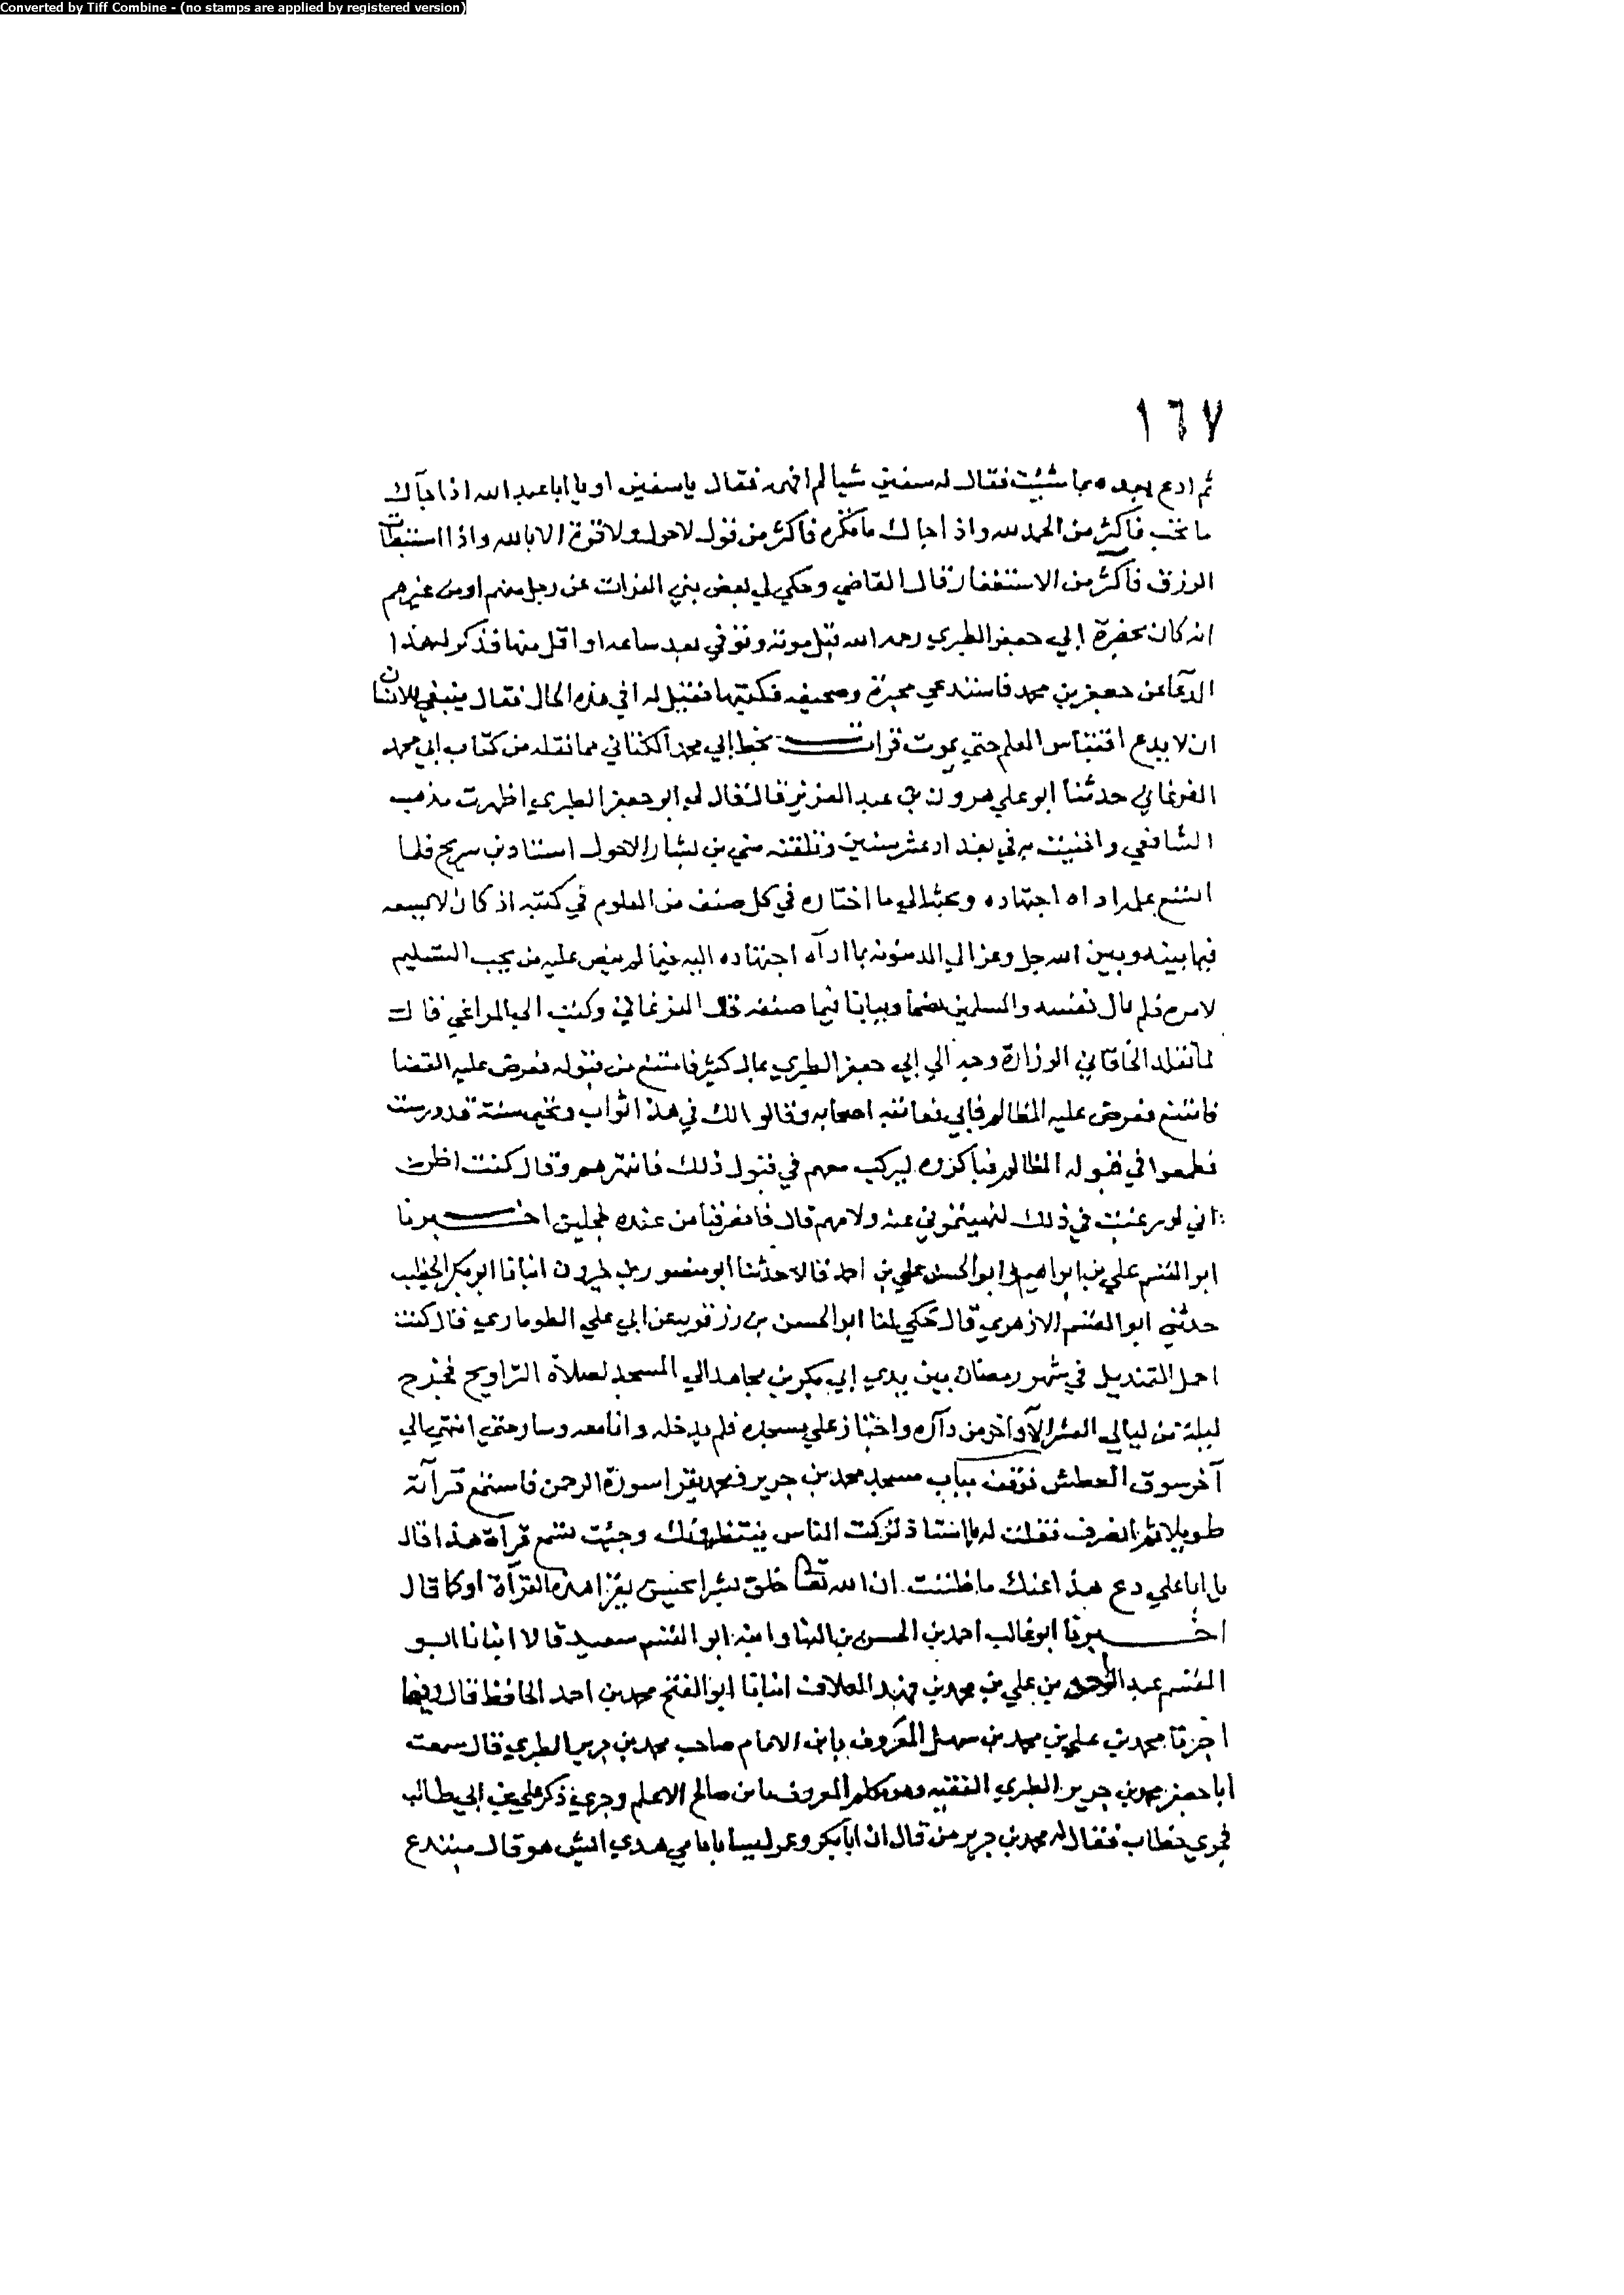 Converted by Tiff Combine - (no stamps are applied by registered version)
١٦٧
ثم ادع بعده بما شئيت فقال له سفين شيا لم افهمه فقال ياسفين او يا اباعبد الله اذا جآك
ما تحب فاكثر من الحمد لله واذا جاك ما تكره فاكثر من قول لا حول ولا قوة الا بالله واذا استبطات
الرزق فاكثر من الاستغفار قال القاضي وحكي لي بعض بني الفرات عن رجل منهم او من غيرهم
انه كان بحضرة ابي جعفر الطبري رحمه الله قبل موته وتوفي بعد ساعه او اقل منها فذكر له هذا
الدعا عن جعفر بن محمد فاستدعي محبرة وصحيفه فكتبها فقيل له افي هذه الحال فقال ينبغي للانسان
ان لا يدع اقتباس العلم حتي يموت قرات بخط ابي محمد الكتاني مما نقله من كتاب ابي محمد
الفرغاني حدثنا ابو علي هرون بن عبد العزيز قال قال لي ابو جعفر الطبري اظهرت مذهب
الشافعي وافتيت به في بغداد عشر سنين وتلقنه مني بن بشار الاحول استاد بن سريج فلما
اتسع علمه اداه اجتهاده وبحثه الي ما اختاره في كل صنف من العلوم في كتبه اذ كان لا يسعه
فيما بينه وبين الله جل وعز الي الدينونه بما اداه اجتهاده اليه فيما لم ينص عليه من يجب التسليم
لامره فلم يال نفسه والمسلمين نصحا وبيانا فيما صنفه قال الفرغاني وكتب الي المراغي قال
لما تقلد الخاقاني الوزارة وجه الي ابي جعفر الطبري بمال كثير فامتنع من قبوله فعرض عليه القضا
فامتنع فعرض عليه المظالم فابي فعاتبه اصحابه وقالوا لك في هذا ثواب وتحيي سنة قد درست
فطمعوا في قبوله المظالم فباكروه ليركب معهم في قبول ذلك فانتهرهم وقال كنت اظن
اني لو رغبت في ذلك لنهيتموني عنه ولامهم قال فانصرفنا من عنده خجلين اخبرنا
ابو القسم علي بن ابراهيم وابو الحسن علي بن احمد قالا حدثنا ابو منصور بن خيرون انبانا ابو بكر الخطيب
حدثني ابو القسم الازهري قال حكي لنا ابو الحسن بن رزقويه عن ابي علي الطوماري قال كنت
احمل القنديل في شهر رمضان بين يدي ابي بكر بن مجاهد الي المسجد لصلاة التراويح فخرج
ليلة من ليالي العشر الاواخر من داره واختاز علي مسجده فلم يدخله وانا معه وسار حتي انتهي الي
آخر سوق العطش فوقف بباب مسجد محمد بن جرير ومحمد يقرا سورة الرحمن فاستمع قرآته
طويلا ثم انصرف فقلت له يا استاذ تركت الناس ينتظرونك وجئت تسمع قرآة هذا قال
يا ابا علي دع هذا عنك ما ظننت ان الله تعالي خلق بشرا يحسن يقرا هذه القرآة او كما قال
اخبرنا ابو غالب احمد بن الحسن بن البنا وابنه ابو القسم سعيد قالا انبانا ابو
القسم عبد الواحد بن علي بن محمد بن فهد العلاف انبانا ابو الفتح محمد بن احمد الحافظ قال وفيما
اخبرنا محمد بن علي بن محمد بن سهل المعروف بابن الامام صاحب محمد بن جرير الطبري قال سمعت
أبا جعفر محمد بن جرير الطبري الفقيه وهو يكلم المعروف بابن صالح الاعلم وجري ذكر علي بن ابي طالب
فجري خطاب فقال له محمد بن جرير من قال ان ابا بكر وعمر ليسا بامامي هدي ايش هو قال مبتدع